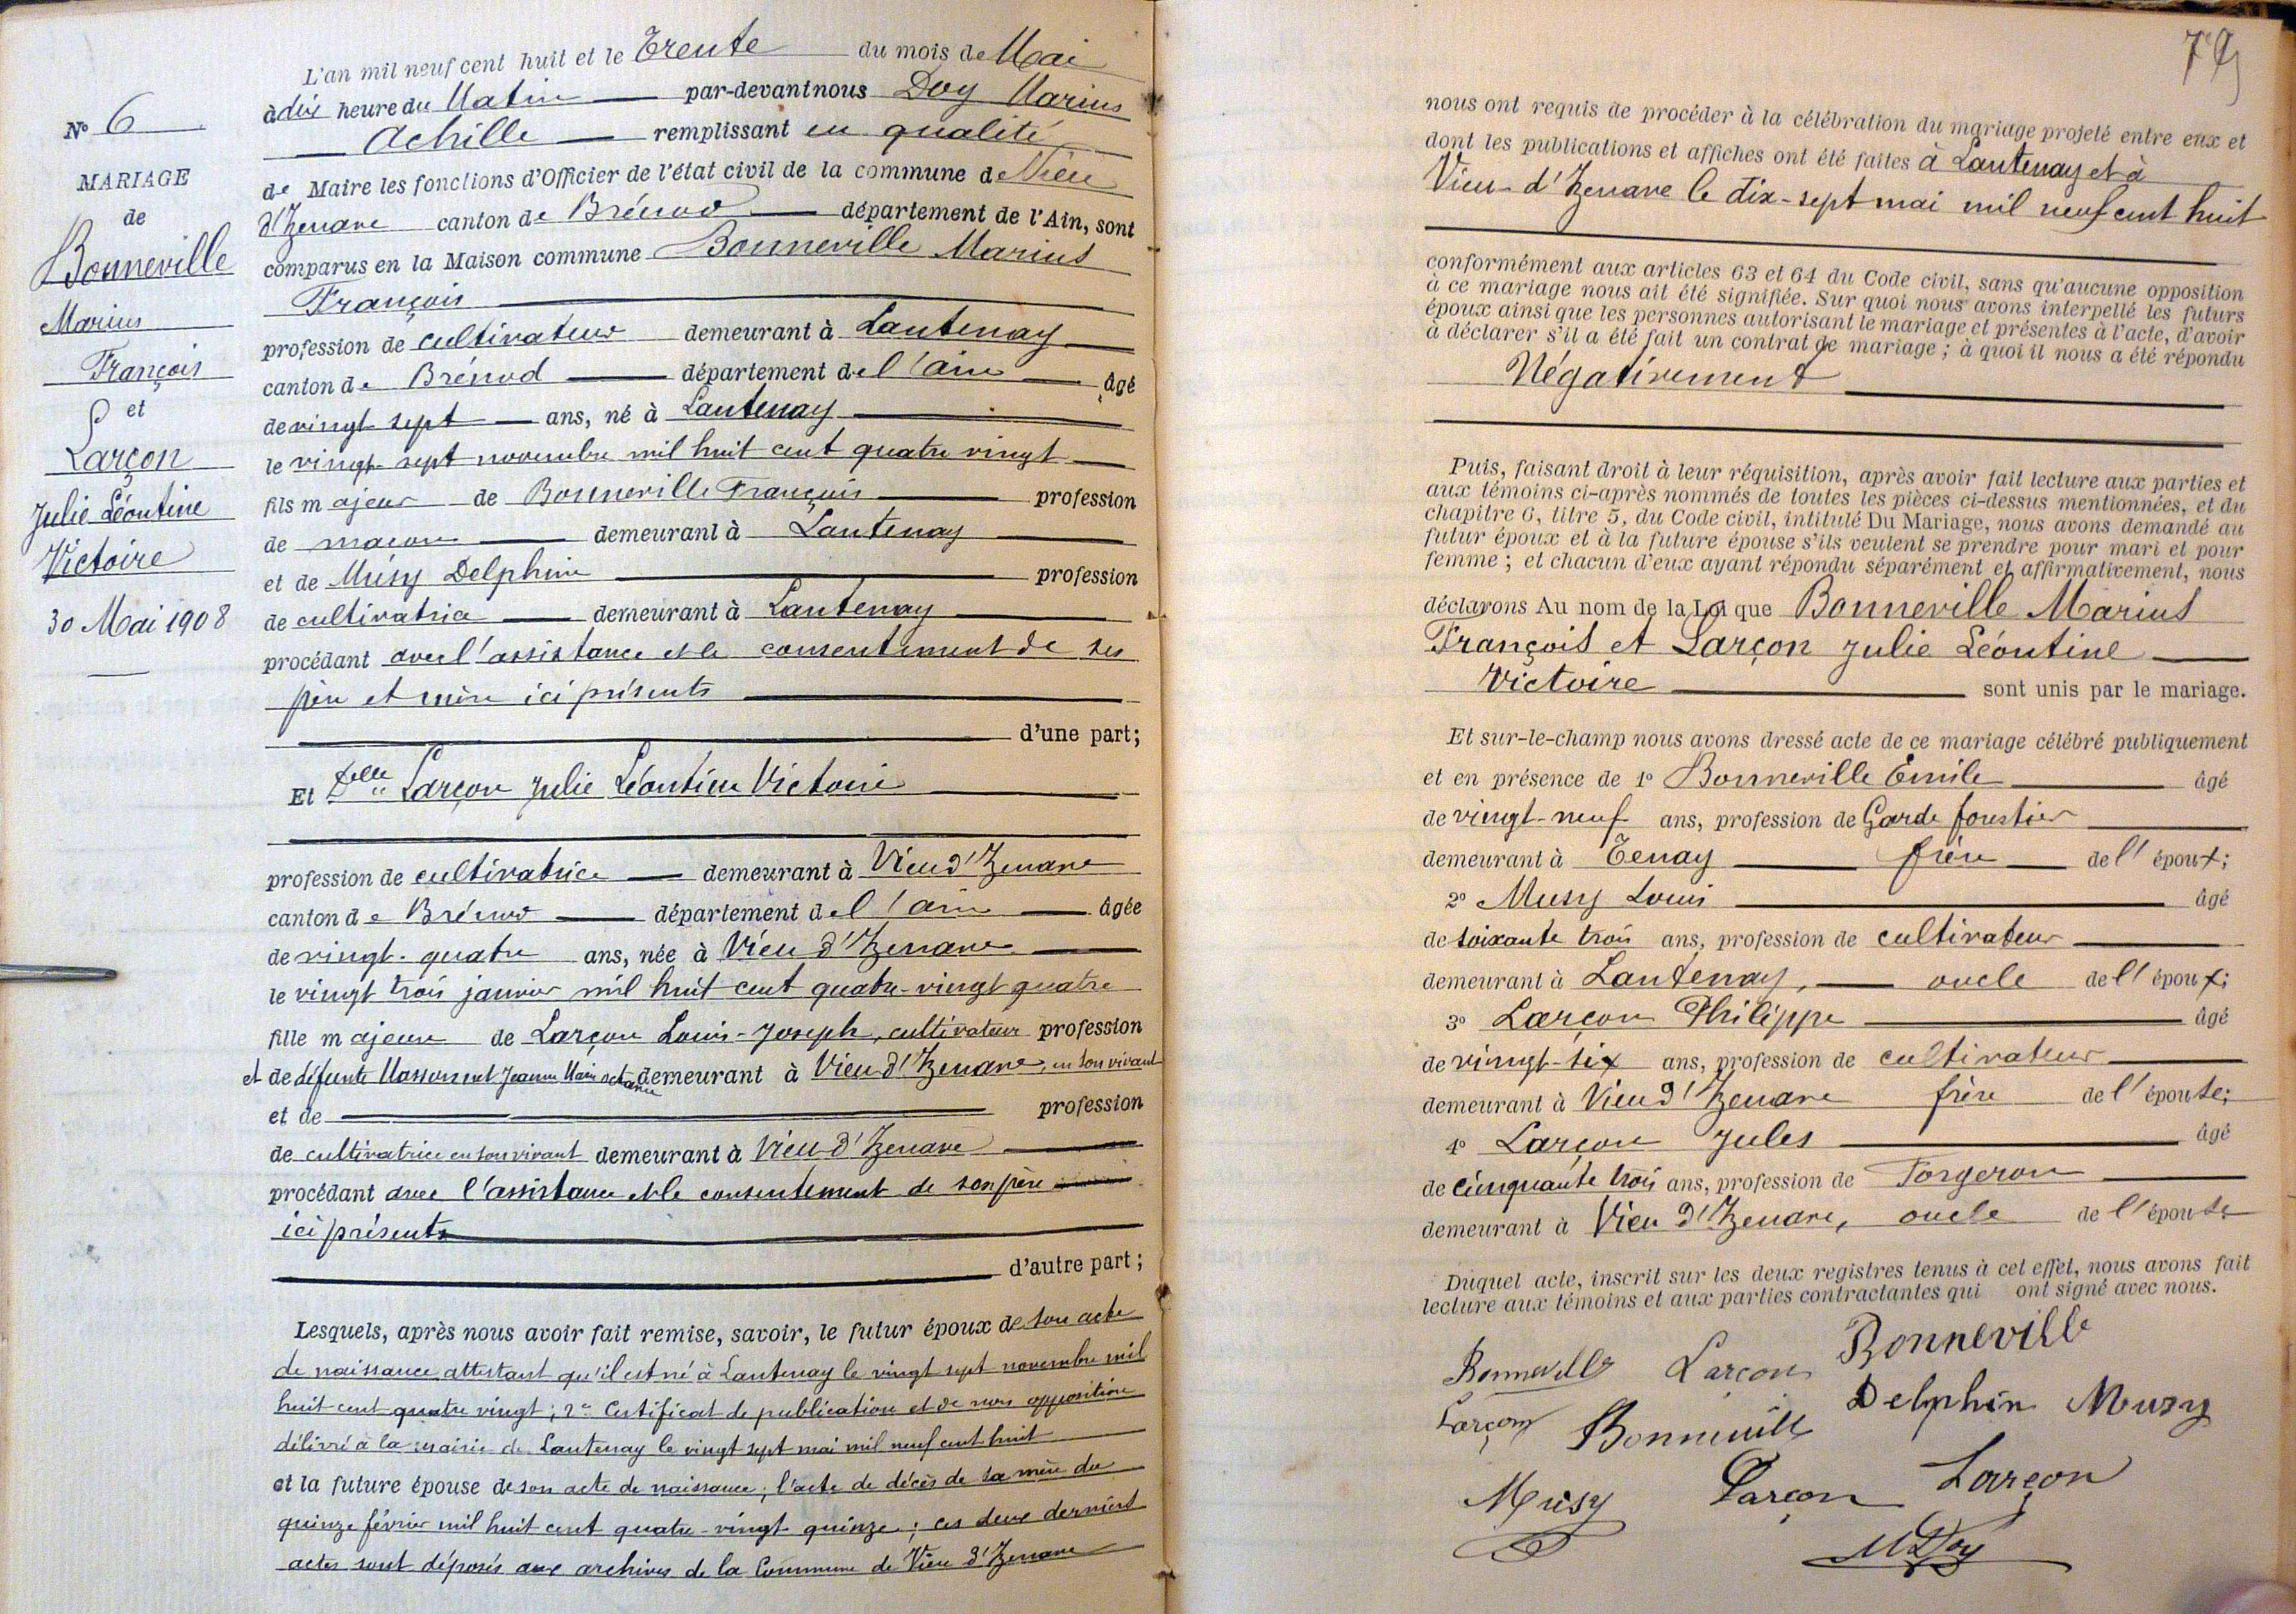 L'an mil neuf cent huit et le Trente du mois de Mai
à dix heure du Matin par-devant nous Doy Marius
Achille remplissant en qualité
de Maire les fonctions d'Officier de l'état civil de la commune de Vieu
d'Izenave canton de Brénod département de l'Ain, sont
comparus en la Maison commune Bonneville Marius
François
profession de cultivateur demeurant à Lantenay
canton de Brénod département de l'ain âgé
de vingt sept ans, né à Lantenay
le vingt-sept novembre mil huit cent quatre vingt
fils majeur de Bonneville François profession
de maçon demeurant à Lantenay
et de Músy Delphine profession
de cultivatrice demeurant à Lantenay
procédant avec l'assistance et le consentement de ses
père et mère ici présents
d'une part;
Et Delle Larçon Julie Léontine Victoire
profession de cultivatrice demeurant à Vieu d'Izenave
canton de Brénod département de l'ain âgée
de vingt-quatre ans, née à Vieu d'Izenave
le vingt trois janvier mil huit cent quatre-vingt quatre
fille majeure de Larçon Louis-Joseph, cultivateur profession
et de défunte Massonnet Jeanne Marie Octavie demeurant à Vieu d'Izenave, en son vivant
et de profession
de cultivatrice en son vivant demeurant à Vieu-d'Izenave
procédant avec l'assistance et le consentement de son père
ici présents
d'autre part;
Lesquels, après nous avoir fait remise, savoir, le futur époux de son acte
de naissance attestant qu'il est né à Lantenay le vingt sept novembre mil
huit cent quatre vingt; 2° Certificat de publication et de non opposition
délivré à la mairie de Lantenay le vingt sept mai mil neuf cent huit
et la future épouse de son acte de naissance; l'acte de décès de sa mère du
quinze février mil huit cent quatre-vingt quinze; ces deux derniers
actes sont déposés aux archives de la Commune de Vieu d'Izenave
N° 6
MARIAGE
de
Bonneville
Marius
François
et
Larçon
Julie Léontine
Victoire
30 Mai 1908
79
nous ont requis de procéder à la célébration du mariage projeté entre eux et
dont les publications et affiches ont été faites à Lantenay et à
Vieu-d'Izenave le dix-sept mai mil neuf cent huit
conformément aux articles 63 et 64 du Code civil, sans qu'aucune opposition
à ce mariage nous ait été signifiée. Sur quoi nous avons interpellé les futurs
époux ainsi que les personnes autorisant le mariage et présentes à l'acte, d'avoir
à déclarer s'il a été fait un contrat de mariage; à quoi il nous a été répondu
Négativement
Puis, faisant droit à leur réquisition, après avoir fait lecture aux parties et
aux témoins ci-après nommés de toutes les pièces ci-dessus mentionnées, et du
chapitre 6, titre 5, du Code civil, intitulé Du Mariage, nous avons demandé au
futur époux et à la future épouse s'ils veulent se prendre pour mari et pour
femme; et chacun d'eux ayant répondu séparément et affirmativement, nous
déclarons Au nom de la Loi que Bonneville Marius
François et Larçon Julie Léontine
Victoire sont unis par le mariage.
Et sur-le-champ nous avons dressé acte de ce mariage célébré publiquement
et en présence de 1° Bonneville Émile âgé
de vingt-neuf ans, profession de Garde forestier
demeurant à Tenay frère de l'époux;
2° Musy Louis âgé
de soixante trois ans, profession de cultivateur
demeurant à Lantenay, oncle de l'époux;
3° Larçon Philippe âgé
de vingt-six ans, profession de cultivateur
demeurant à Vieu d'Izenave frère de l'épouse;
4° Larçon Jules âgé
de cinquante trois ans, profession de Forgeron
demeurant à Vieu d'Izenave, oncle de l'épouse
Duquel acte, inscrit sur les deux registres tenus à cet effet, nous avons fait
lecture aux témoins et aux parties contractantes qui ont signé avec nous.
Bonneville Larçon Bonneville
Larçon Bonneville Delphin Musy
Músy Larçon Larçon
MDoy